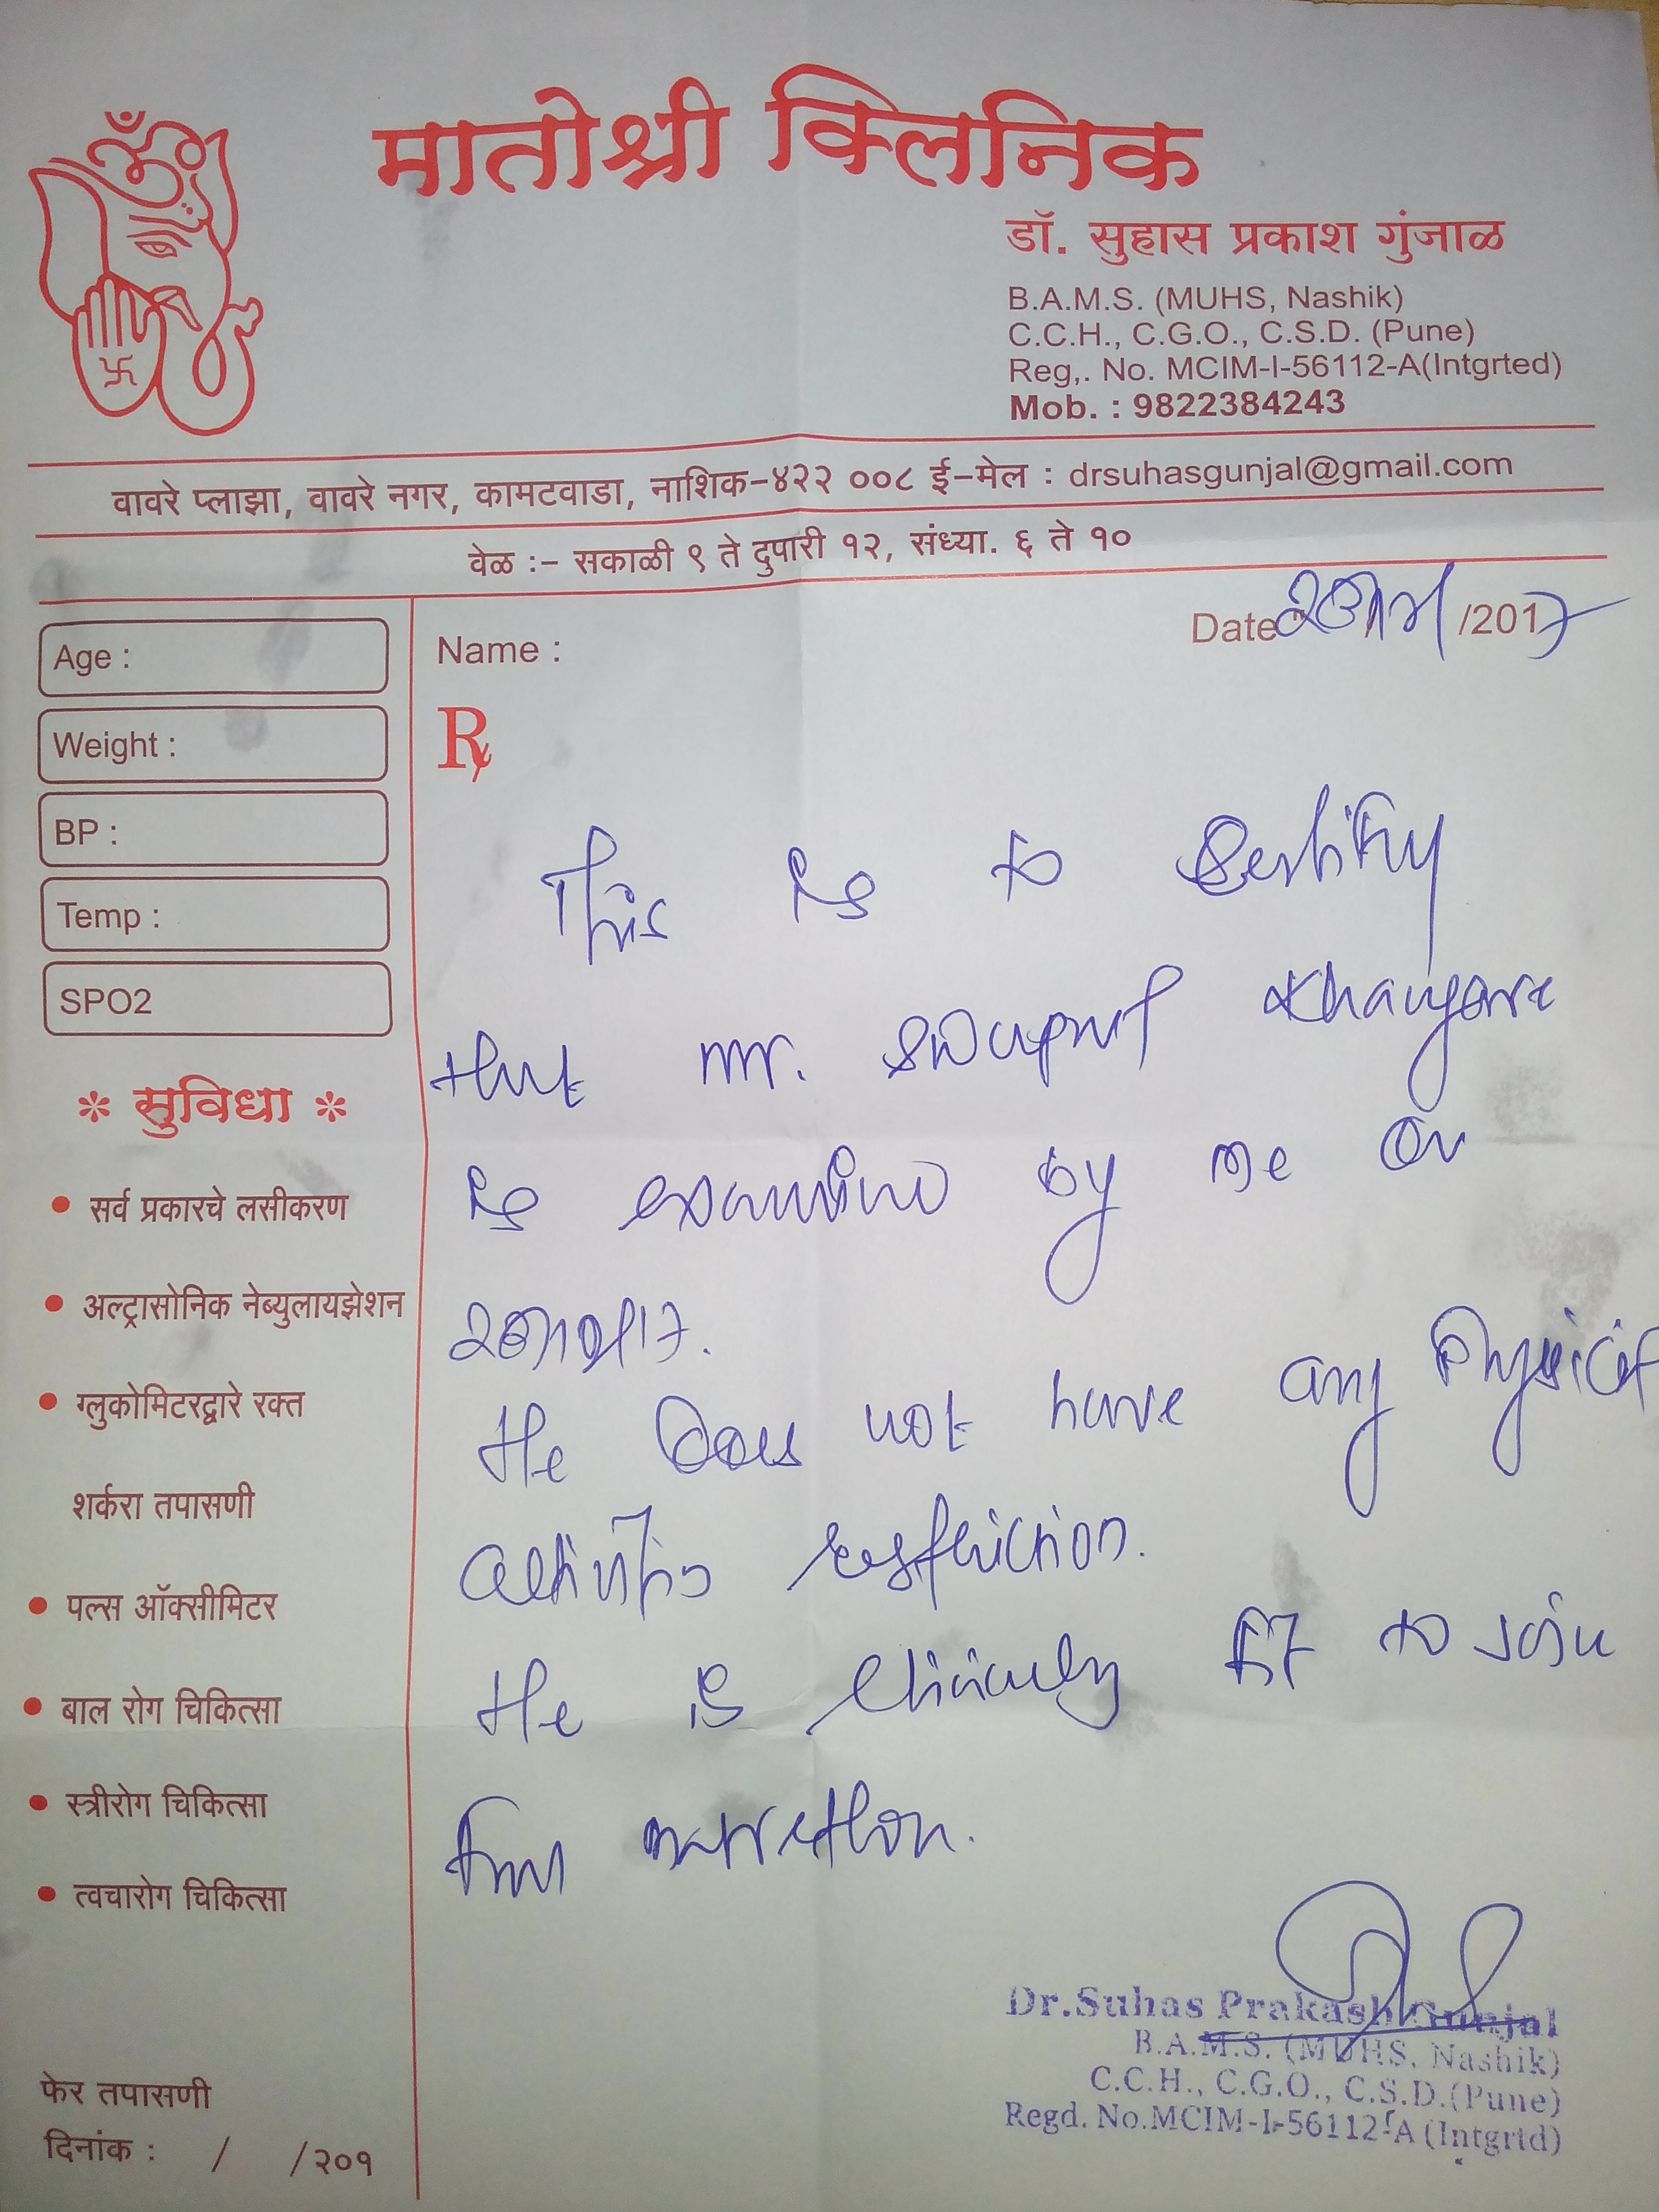 ॐ
मातोश्री क्लिनिक
डॉ. सुहास प्रकाश गुंजाळ
B.A.M.S. (MUHS, Nashik)
C.C.H., C.G.O., C.S.D. (Pune)
Reg,. No. MCIM-I-56112-A(Intgrted)
Mob. : 9822384243
वावरे प्लाझा, वावरे नगर, कामटवाडा, नाशिक-४२२ ००८ ई-मेल : drsuhasgunjal@gmail.com
वेळ :- सकाळी ९ ते दुपारी १२, संध्या. ६ ते १०
Date /2017
Age :
Name :
Weight :
BP :
Temp :
SPO2
This is to Certify
that mr. Swapnil Khairgave
is examine by me on
He Does not have any Physical
activity restriction.
He is clinically fit to Join
for marrethon.
* सुविधा *
• सर्व प्रकारचे लसीकरण
• अल्ट्रासोनिक नेब्युलायझेशन
• ग्लुकोमिटरद्वारे रक्त
शर्करा तपासणी
• पल्स ऑक्सीमिटर
• बाल रोग चिकित्सा
• स्त्रीरोग चिकित्सा
• त्वचारोग चिकित्सा
फेर तपासणी
दिनांक : / /२०१
Dr.Suhas Prakash Gunjal
B.A.M.S. (MUHS, Nashik)
C.C.H., C.G.O., C.S.D.(Pune)
Regd. No.MCIM-I-56112-A (Intgrtd)